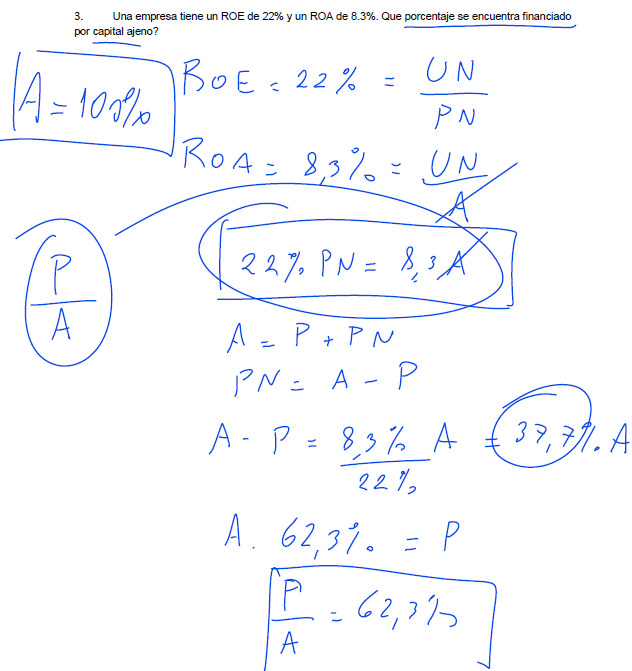 3. Una empresa tiene un ROE de 22% y un ROA de 8.3%. Que porcentaje se encuentra financiado
por capital ajeno?
A = 100%
ROE = 22% = UN / PN
ROA = 8,3% = UN / A
P / A
22% PN = 8,3 A
A = P + PN
PN = A - P
A - P = 8,3% / 22% A = 37,7% . A
A . 62,3% = P
P / A = 62,3%